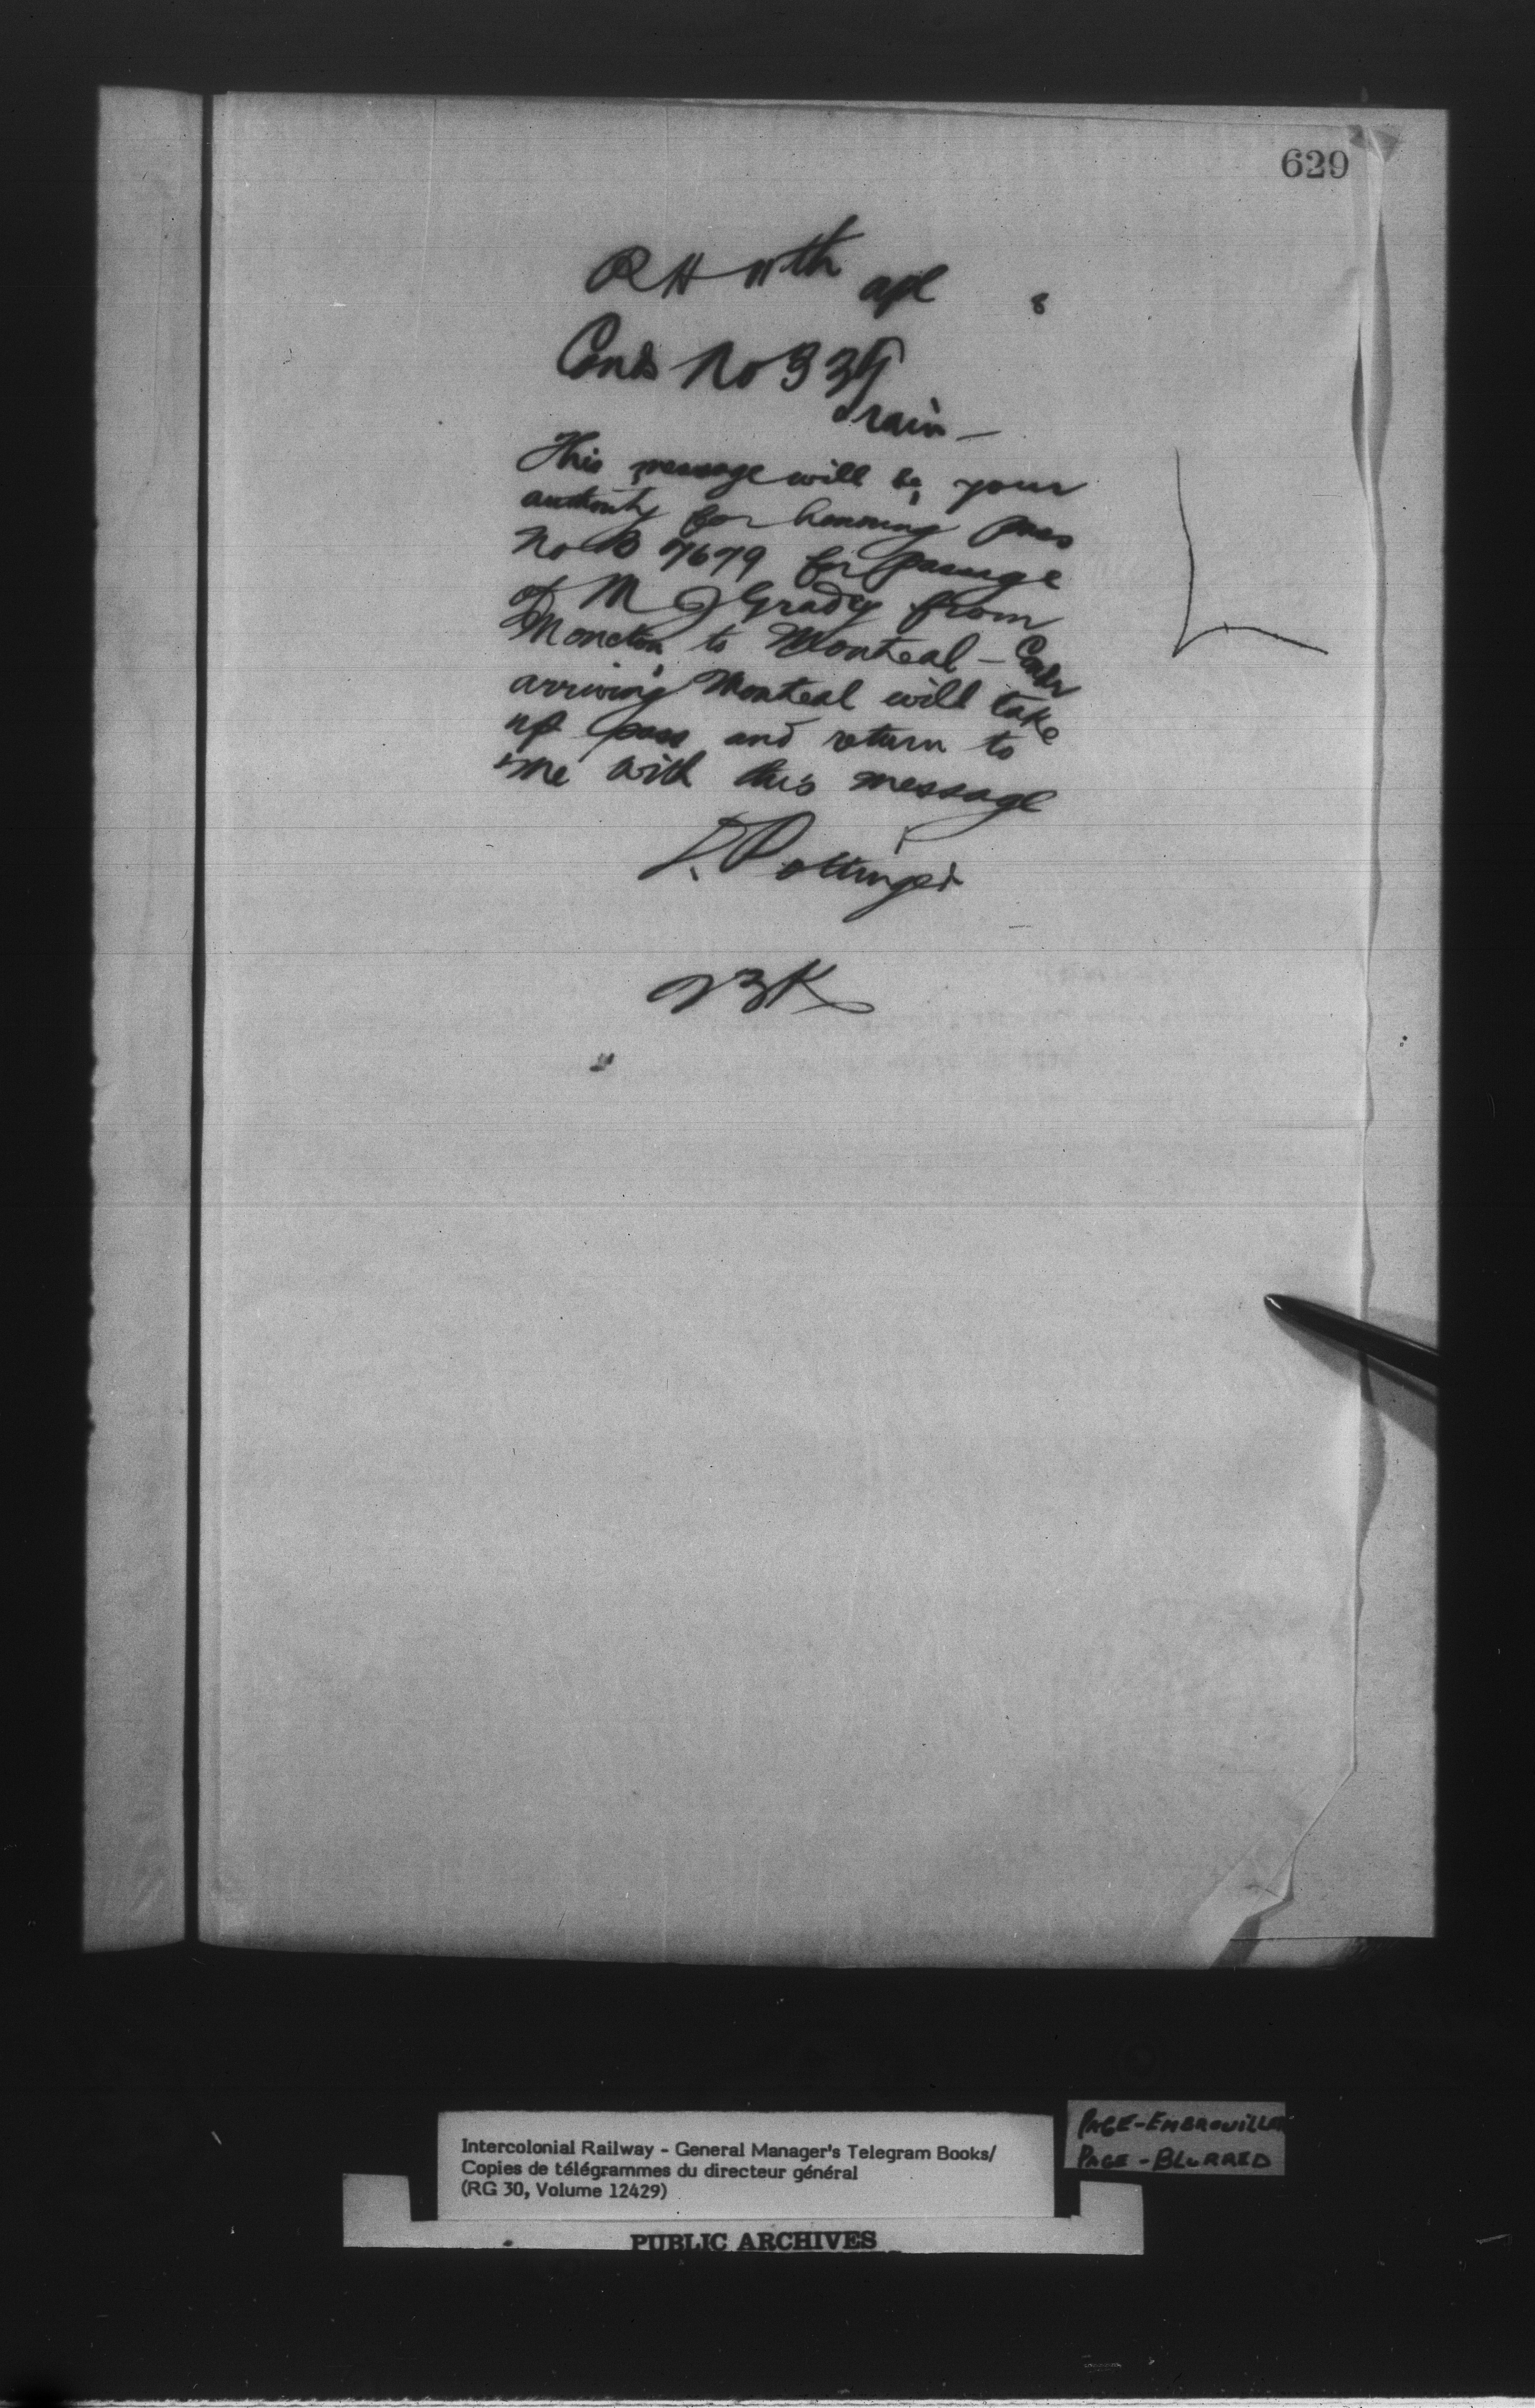 629
RH 11th apl 8
Conds No 3 39
Train —
This message will be your
authority for honoring pass
No B 7679 for passage
of M J Grady from
Moncton to Montreal — Condr
arriving Montreal will take
up pass and return to
me with this message
D. Pottinger
23K
Intercolonial Railway - General Manager's Telegram Books/
Copies de télégrammes du directeur général
(RG 30, Volume 12429)
PUBLIC ARCHIVES
PAGE-EMBROUILLÉE
PAGE-BLURRED